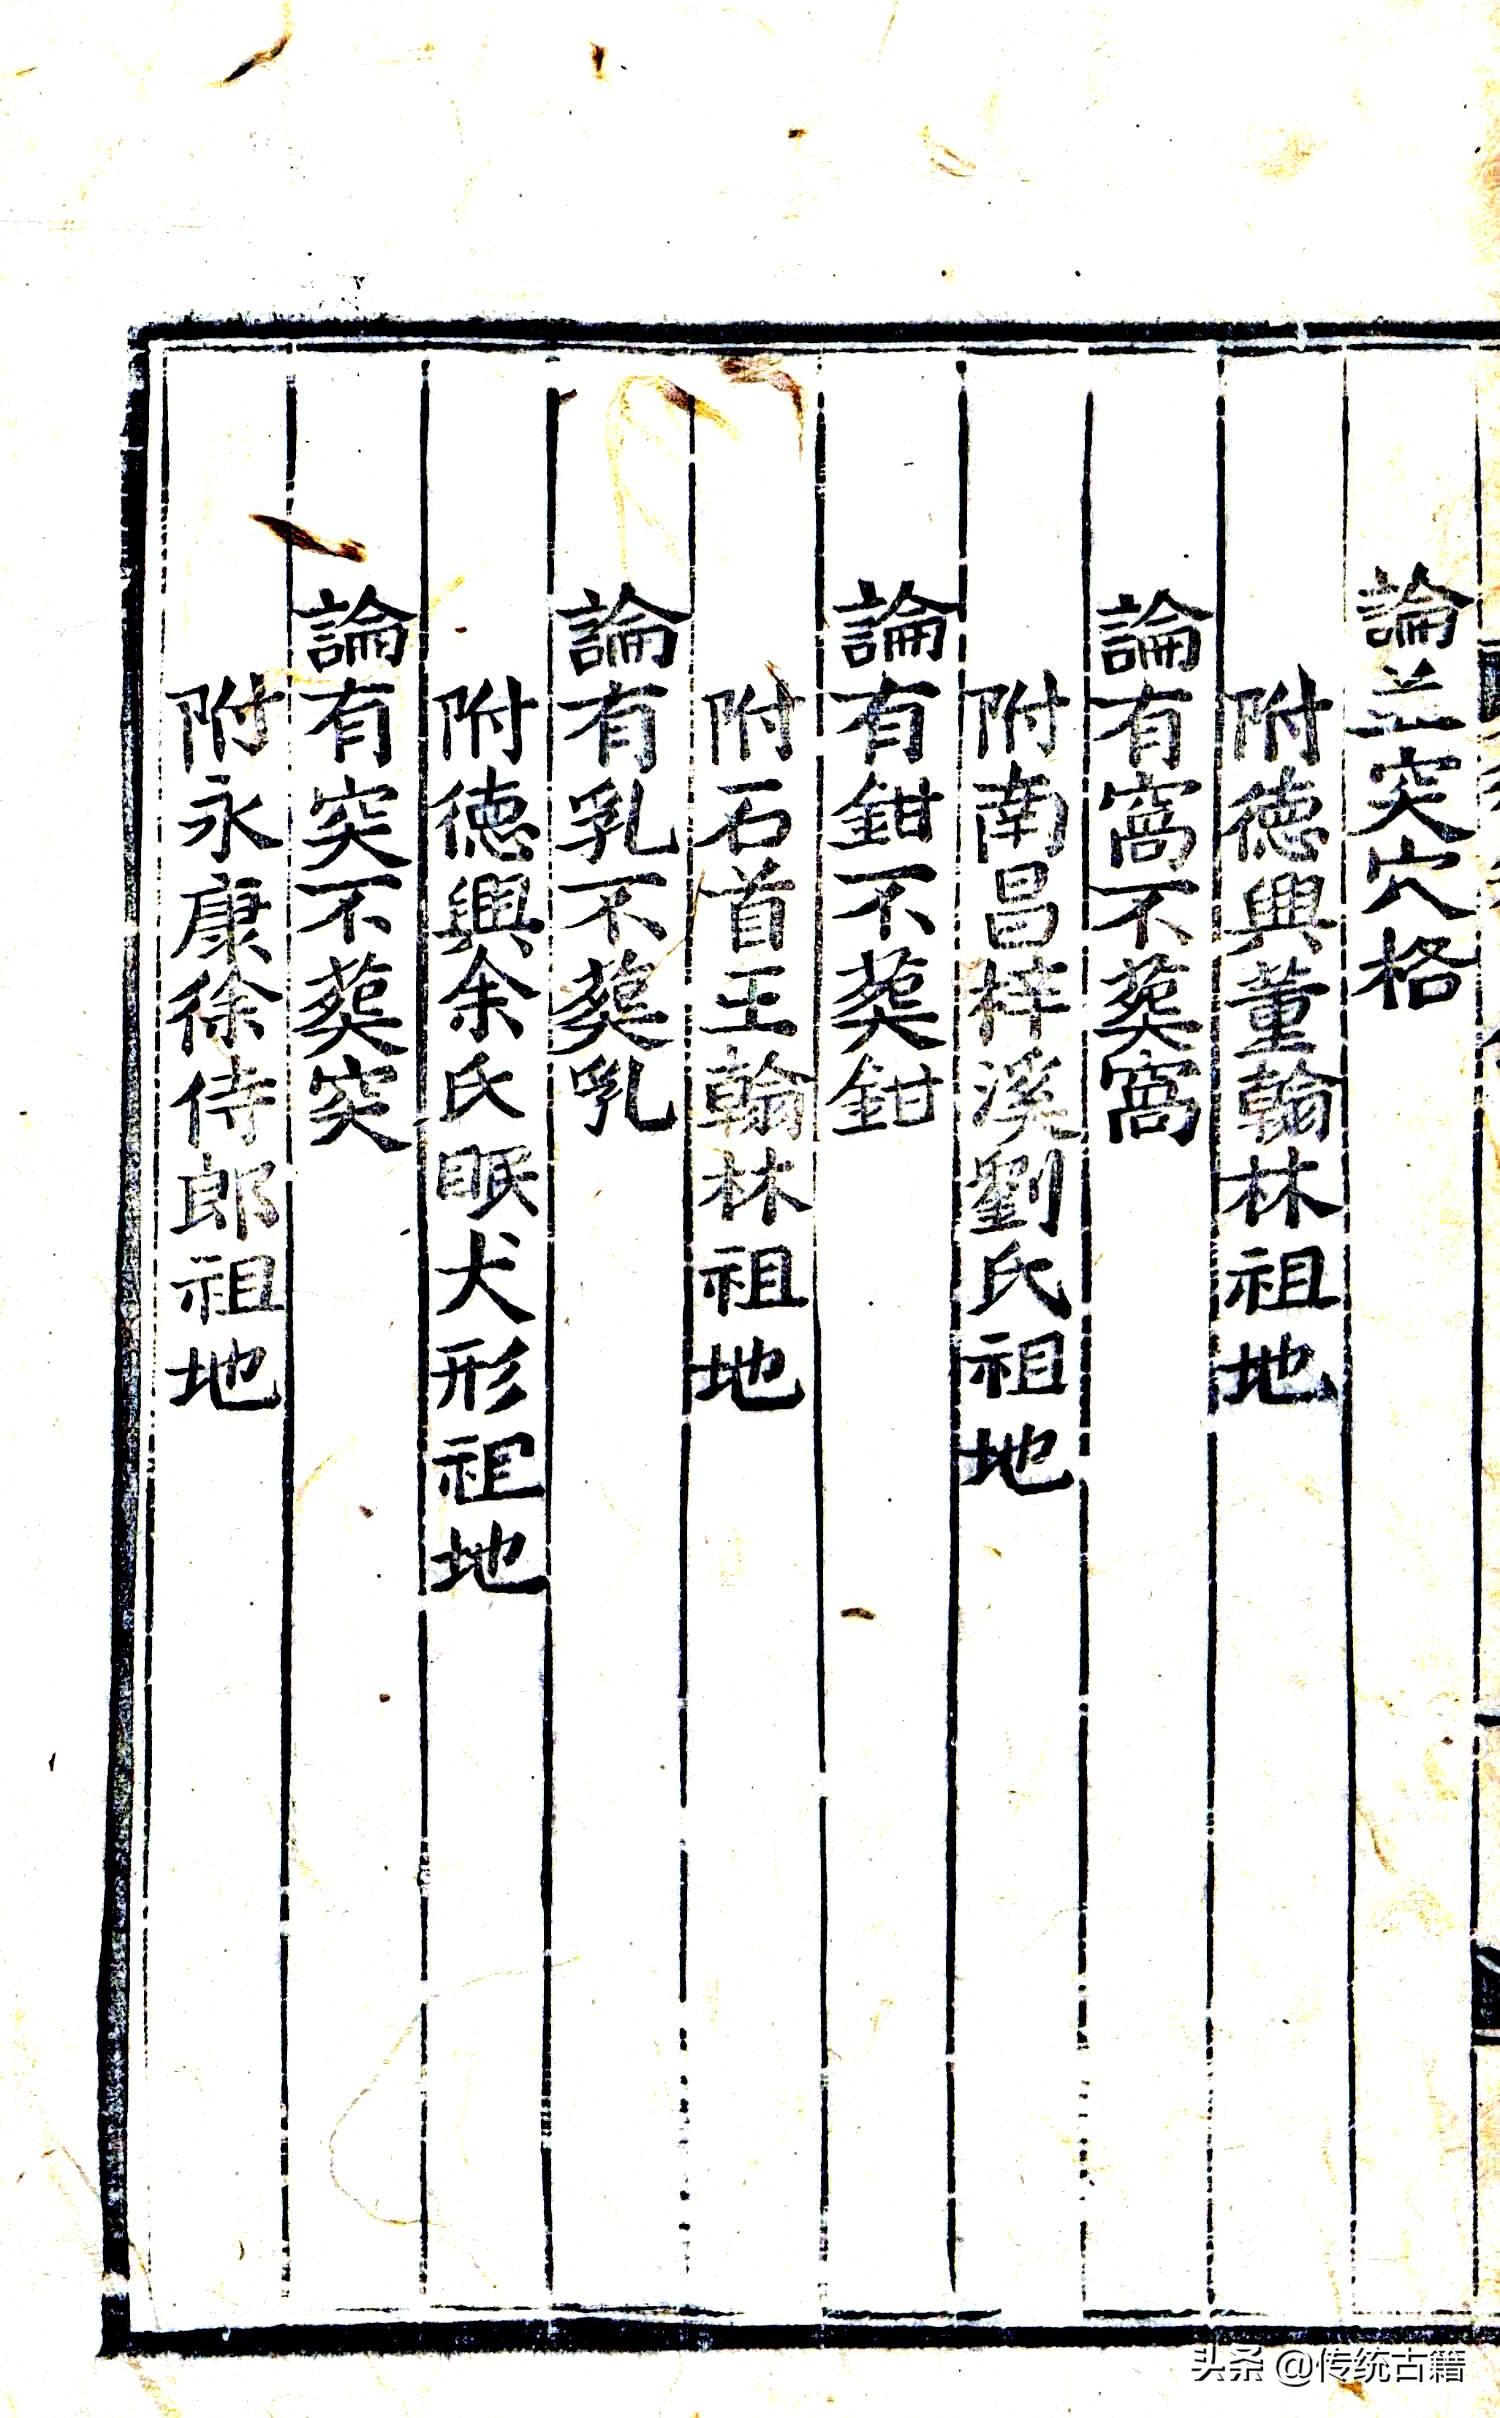 論並突穴格
附德興董翰林祖地
論有窩不葬窩
附南昌梓溪劉氏祖地
論有鉗不葬鉗
附石首王翰林祖地
論有乳不葬乳
附德興余氏眠犬形祖地
論有突不葬突
附永康徐侍郎祖地
头条 @传统古籍